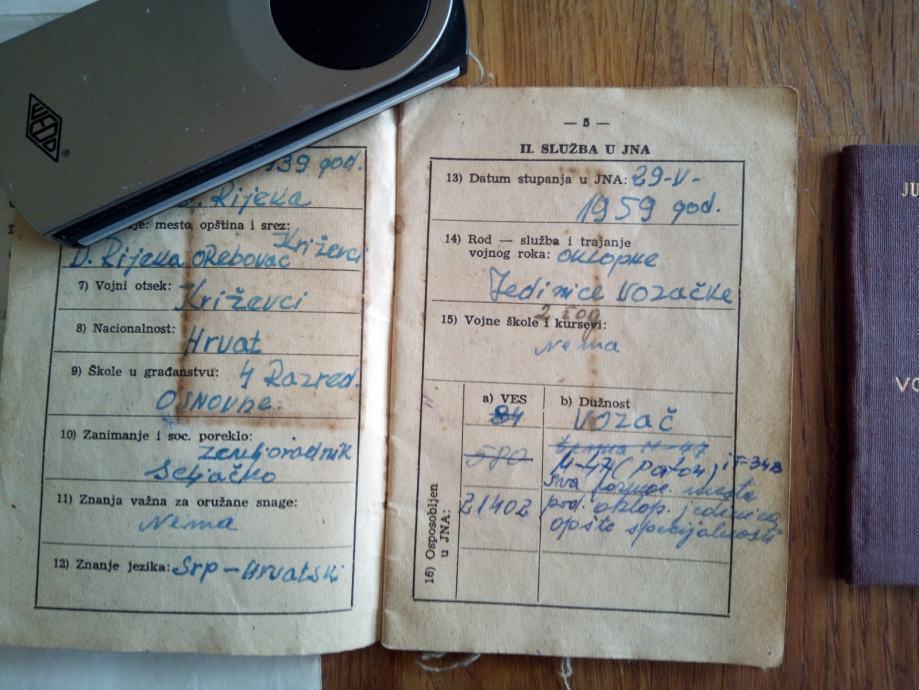 WEDO
®
939 god.
Rijeka
mesto, opština i srez:
Križevci
D. Rijeka Orebovac
7) Vojni otsek: Križevci
8) Nacionalnost:
Hrvat
9) Škole u građanstvu: 4 Razred.
OSNOVNE.
10) Zanimanje i soc. poreklo:
zemljoradnik
Seljačko
11) Znanja važna za oružane snage:
Nema
12) Znanje jezika: Srp-Hrvatski
— 5 —
II. SLUŽBA U JNA
13) Datum stupanja u JNA: 29-V-
1959 god.
14) Rod — služba i trajanje
vojnog roka: OKLOPNE
Jedinice VOZAČKE
2 god
15) Vojne škole i kursevi:
Nema
16) Osposobljen
u JNA:
a) VES
b) Dužnost
84
VOZAČ
M-47
580
M-47 (Paton) i T-34B
sva
mesta
21402
pod. oklop. jedinica
opšte specijalnosti
JU
VO